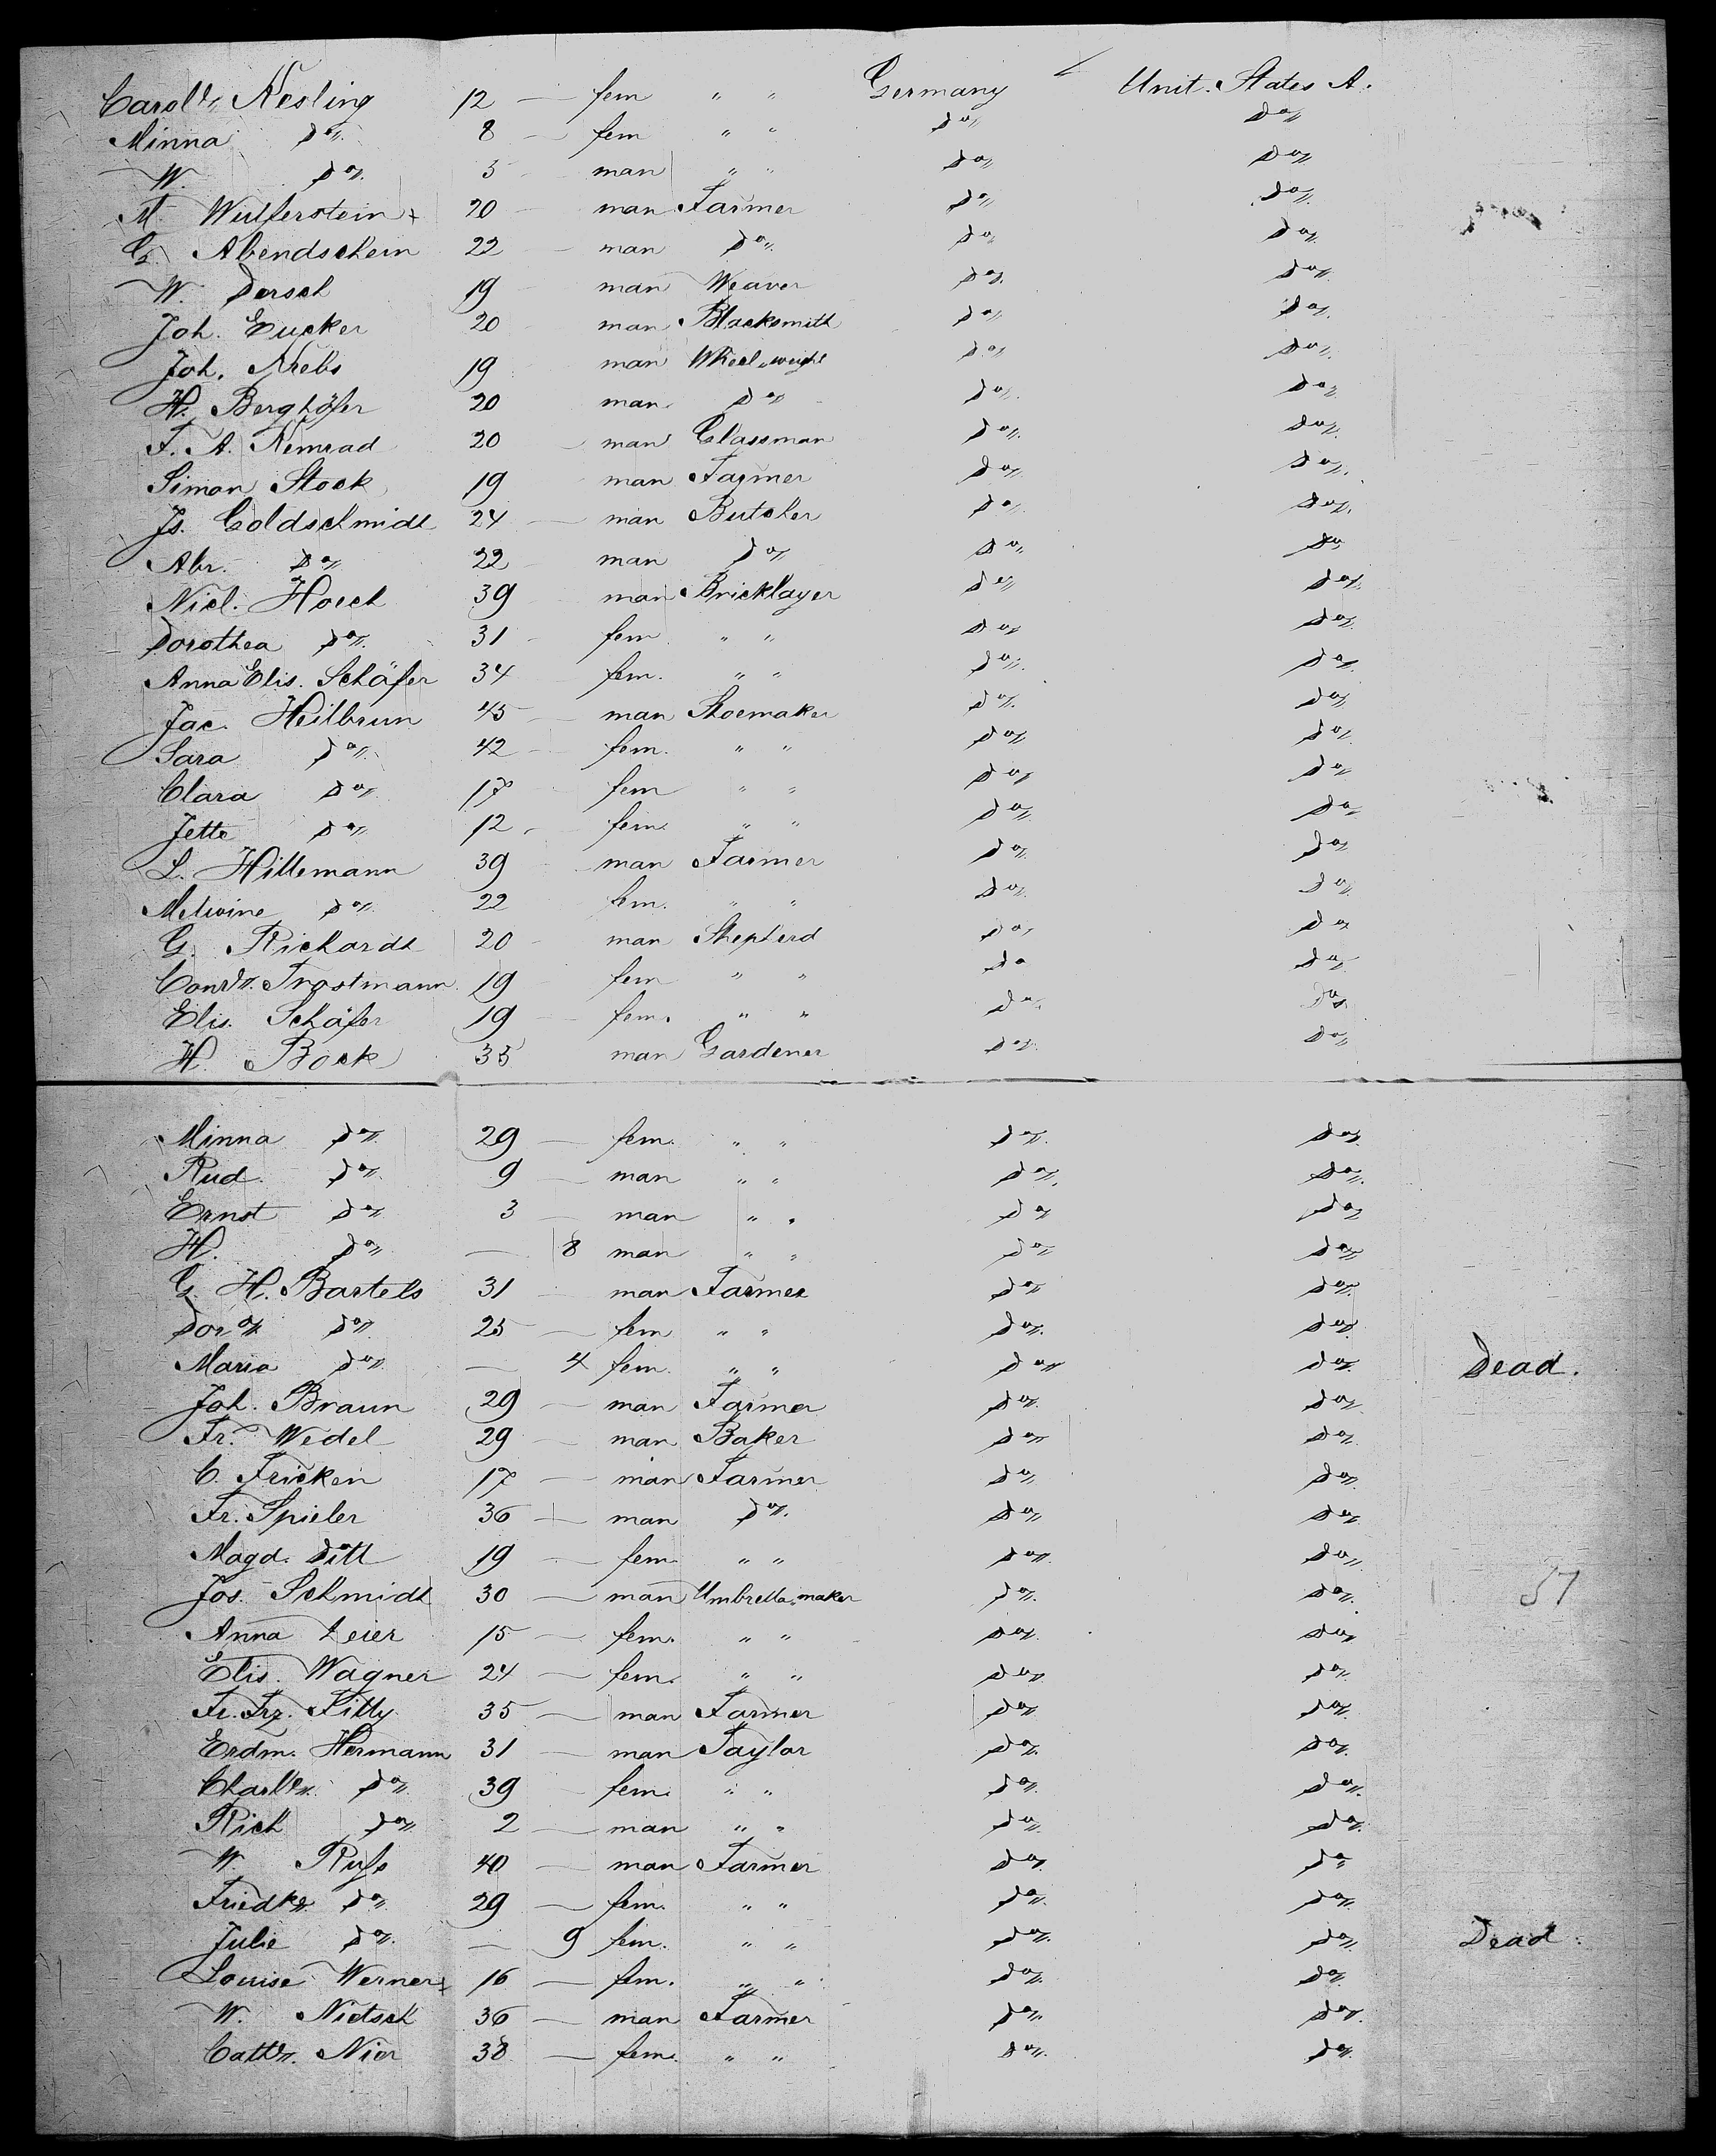 Caroll. Kesling 12 — fem " " Germany Unit. States A.
Minna do 8 — fem " " do do
W. do 5 - man " " do do
M. Wulferstein + 20 - man Farmer do do
G. Abendschein 22 - man do do do
W. Dersch 19 man Weaver do do
Joh. Eucker 20 man Blacksmith do do
Joh. Krebs 19 man Wheelwright do do
H. Berghöfer 20 man do do do
F. A. Kemrad 20 - man Glassman do do
Simon Stock 19 man Farmer do do
Js. Goldschmidt 24 — man Butcher do do
Abr. do 22 - man do do do
Nicl. Horch 39 man Bricklayer do do
Dorothea do 31 - fem " " do do
Anna Elis. Schäfer 34 fem. " " do do
Jac. Heilbrun 45 — man Shoemaker do do
Sara do 42 - fem. " " do do
Clara do 17 fem " " do do
Jette do 12 - fem. " " do do
L. Hillemann 39 man Farmer do do
Melwine do 22 fem. " " do do
G. Richardt 20 man Shepherd do do
Conrd. Trostmann 19 fem " " do do
Elis. Schäfer 19 - fem. " " do do
H. Bock 35 man Gardener do do
Minna do 29 — fem. " " do do
Rud. do 9 — man " " do do
Ernst do 3 — man " " do do
H. do — 8 man " " do do
G. H. Bartels 31 man Farmer do do
Dor. do 25 — fem " " do do
Maria do — 4 fem. " " do do Dead.
Joh. Braun 29 — man Farmer do do
Fr. Wedel 29 — man Baker do do
C. Fricken 17 — man Farmer do do
Fr. Spieler 36 — man do do do
Magd. Ditt 19 — fem. " " do do
Jos. Schmidt 30 — man Umbrella maker do do 57
Anna Leier 15 — fem. " " do do
Elis. Wagner 24 — fem. " " do do
Fr. Frz. Filly 35 — man Farmer do do
Erdm. Hermann 31 — man Taylor do do
Charltte. do 39 - fem. " " do do
Rich do 2 — man " " do do
W. Rufs 40 — man Farmer do do
Friedke do 29 — fem. " " do do
Julie do — 9 fem. " " do do Dead.
Louise Werner + 16 — fem. " " do do
W. Nietsch 36 — man Farmer do do
Cath. Nier 38 — fem. " " do do